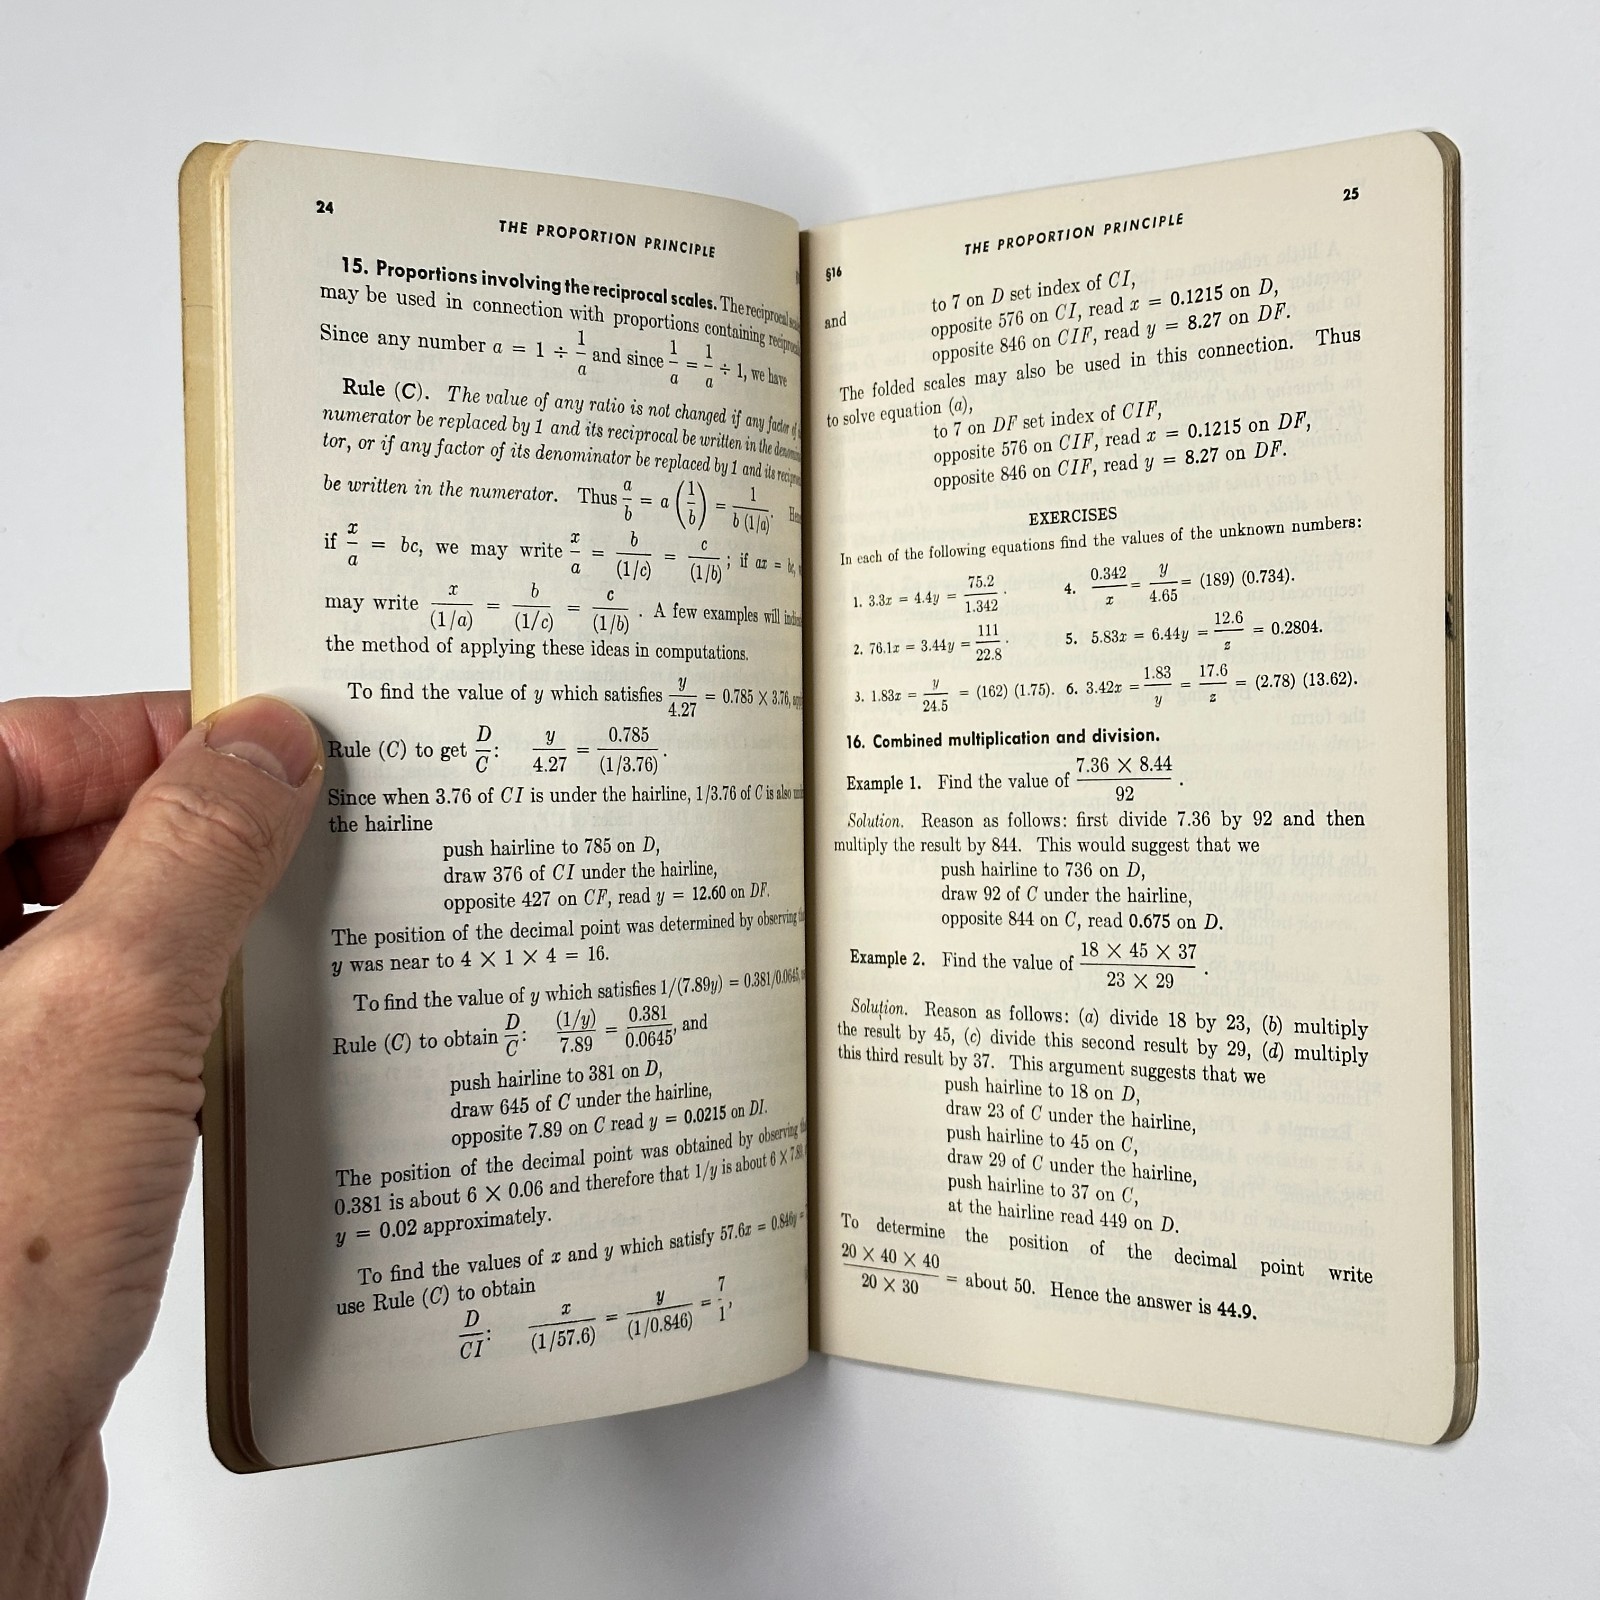 24
THE PROPORTION PRINCIPLE
15. Proportions involving the reciprocal scales. The reciprocal
may be used in connection with proportions containing
Since any number a = 1 ÷ 1/a and since 1/a = 1/a ÷ 1, we have
Rule (C). The value of any ratio is not changed if any factor of
numerator be replaced by 1 and its reciprocal be written in the
tor, or if any factor of its denominator be replaced by 1 and its
be written in the numerator. Thus a/b = a (1/b) = 1/(b (1/a)).
if x/a = bc, we may write x/a = b/(1/c) = c/(1/b); if ax = bc,
may write x/(1/a) = b/(1/c) = c/(1/b). A few examples will
the method of applying these ideas in computations.
To find the value of y which satisfies y/4.27 = 0.785 × 3.76,
Rule (C) to get D/C: y/4.27 = 0.785/(1/3.76).
Since when 3.76 of CI is under the hairline, 1/3.76 of C is also
the hairline
push hairline to 785 on D,
draw 376 of CI under the hairline,
opposite 427 on CF, read y = 12.60 on DF.
The position of the decimal point was determined by observing
y was near to 4 × 1 × 4 = 16.
To find the value of y which satisfies 1/(7.89y) = 0.381/0.0645,
Rule (C) to obtain D/C: (1/y)/7.89 = 0.381/0.0645, and
push hairline to 381 on D,
draw 645 of C under the hairline,
opposite 7.89 on C read y = 0.0215 on DI.
The position of the decimal point was obtained by observing
0.381 is about 6 × 0.06 and therefore that 1/y is about 6 ×
y = 0.02 approximately.
To find the values of x and y which satisfy 57.6x = 0.846y =
use Rule (C) to obtain
D/CI: x/(1/57.6) = y/(1/0.846) = 7/1,
25
THE PROPORTION PRINCIPLE
§16
and
to 7 on D set index of CI,
opposite 576 on CI, read x = 0.1215 on D,
opposite 846 on CIF, read y = 8.27 on DF.
The folded scales may also be used in this connection. Thus
to solve equation (a),
to 7 on DF set index of CIF,
opposite 576 on CIF, read x = 0.1215 on DF,
opposite 846 on CIF, read y = 8.27 on DF.
EXERCISES
In each of the following equations find the values of the unknown numbers:
1. 3.3x = 4.4y = 75.2/1.342. 4. 0.342/x = y/4.65 = (189) (0.734).
2. 76.1x = 3.44y = 111/22.8. 5. 5.83x = 6.44y = 12.6/z = 0.2804.
3. 1.83x = y/24.5 = (162) (1.75). 6. 3.42x = 1.83/y = 17.6/z = (2.78) (13.62).
16. Combined multiplication and division.
Example 1. Find the value of 7.36 × 8.44/92.
Solution. Reason as follows: first divide 7.36 by 92 and then
multiply the result by 844. This would suggest that we
push hairline to 736 on D,
draw 92 of C under the hairline,
opposite 844 on C, read 0.675 on D.
Example 2. Find the value of 18 × 45 × 37/23 × 29.
Solution. Reason as follows: (a) divide 18 by 23, (b) multiply
the result by 45, (c) divide this second result by 29, (d) multiply
this third result by 37. This argument suggests that we
push hairline to 18 on D,
draw 23 of C under the hairline,
push hairline to 45 on C,
draw 29 of C under the hairline,
push hairline to 37 on C,
at the hairline read 449 on D.
To determine the position of the decimal point write
20 × 40 × 40/20 × 30 = about 50. Hence the answer is 44.9.